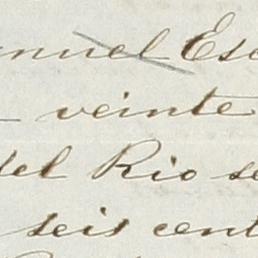 nuel Esc
veinte
del Rio se
seis cent